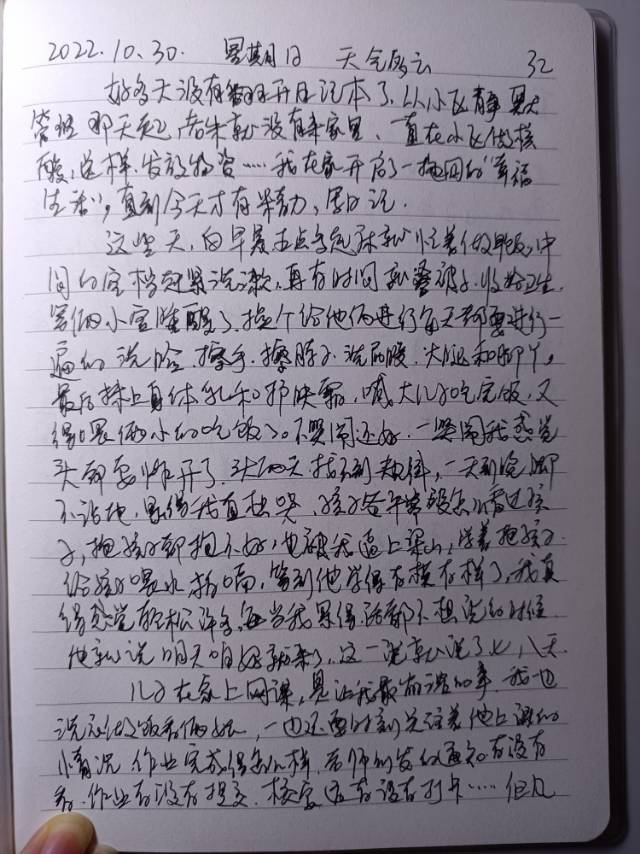 2022.10.30. 星期日 天气多云 32
好多天没有翻开日记本了，从小区静默
管控那天起，老朱就没有来家里，一直在小区做核
酸，送样，发放物资……我在家开启了一拖四的"幸福
生活"，直到今天才有精力，写日记.
这些天，向早晨五点多起床就忙着做早饭，中
间的空档赶紧洗漱，再有时间就叠被子.收拾卫生.
等俩小宝睡醒了.挨个给他俩进行每天都要进行一
遍的洗脸.擦手.擦脖子.洗屁股.大腿和脚丫，
最后抹上身体乳和护肤霜，喊大儿子吃完饭，又
得喂俩小的吃饭了。不哭闹还好，一哭闹我感觉
头都要炸开了.头两天找不到规律，一天到晚脚
不沾地，累得我直想哭，孩子爸平常没怎么看过孩
子，抱孩子都抱不好，也被我逼上梁山，学着抱孩子
给孩子喂水拍嗝，等到他学得有模有样了，我真
得感觉轻松许多，每当我累得话都不想说的时候
他就说明天咱妈就来了，这一说就说了七、八天.
儿子在家上网课，是让我最崩溃的事.我也
说不做饭看俩娃，一也还要时刻关注着他上课的
小情况 作业完成得怎么样.老师的发的通知有没有
看.作业有没有提交.核实还有没有打卡……但凡